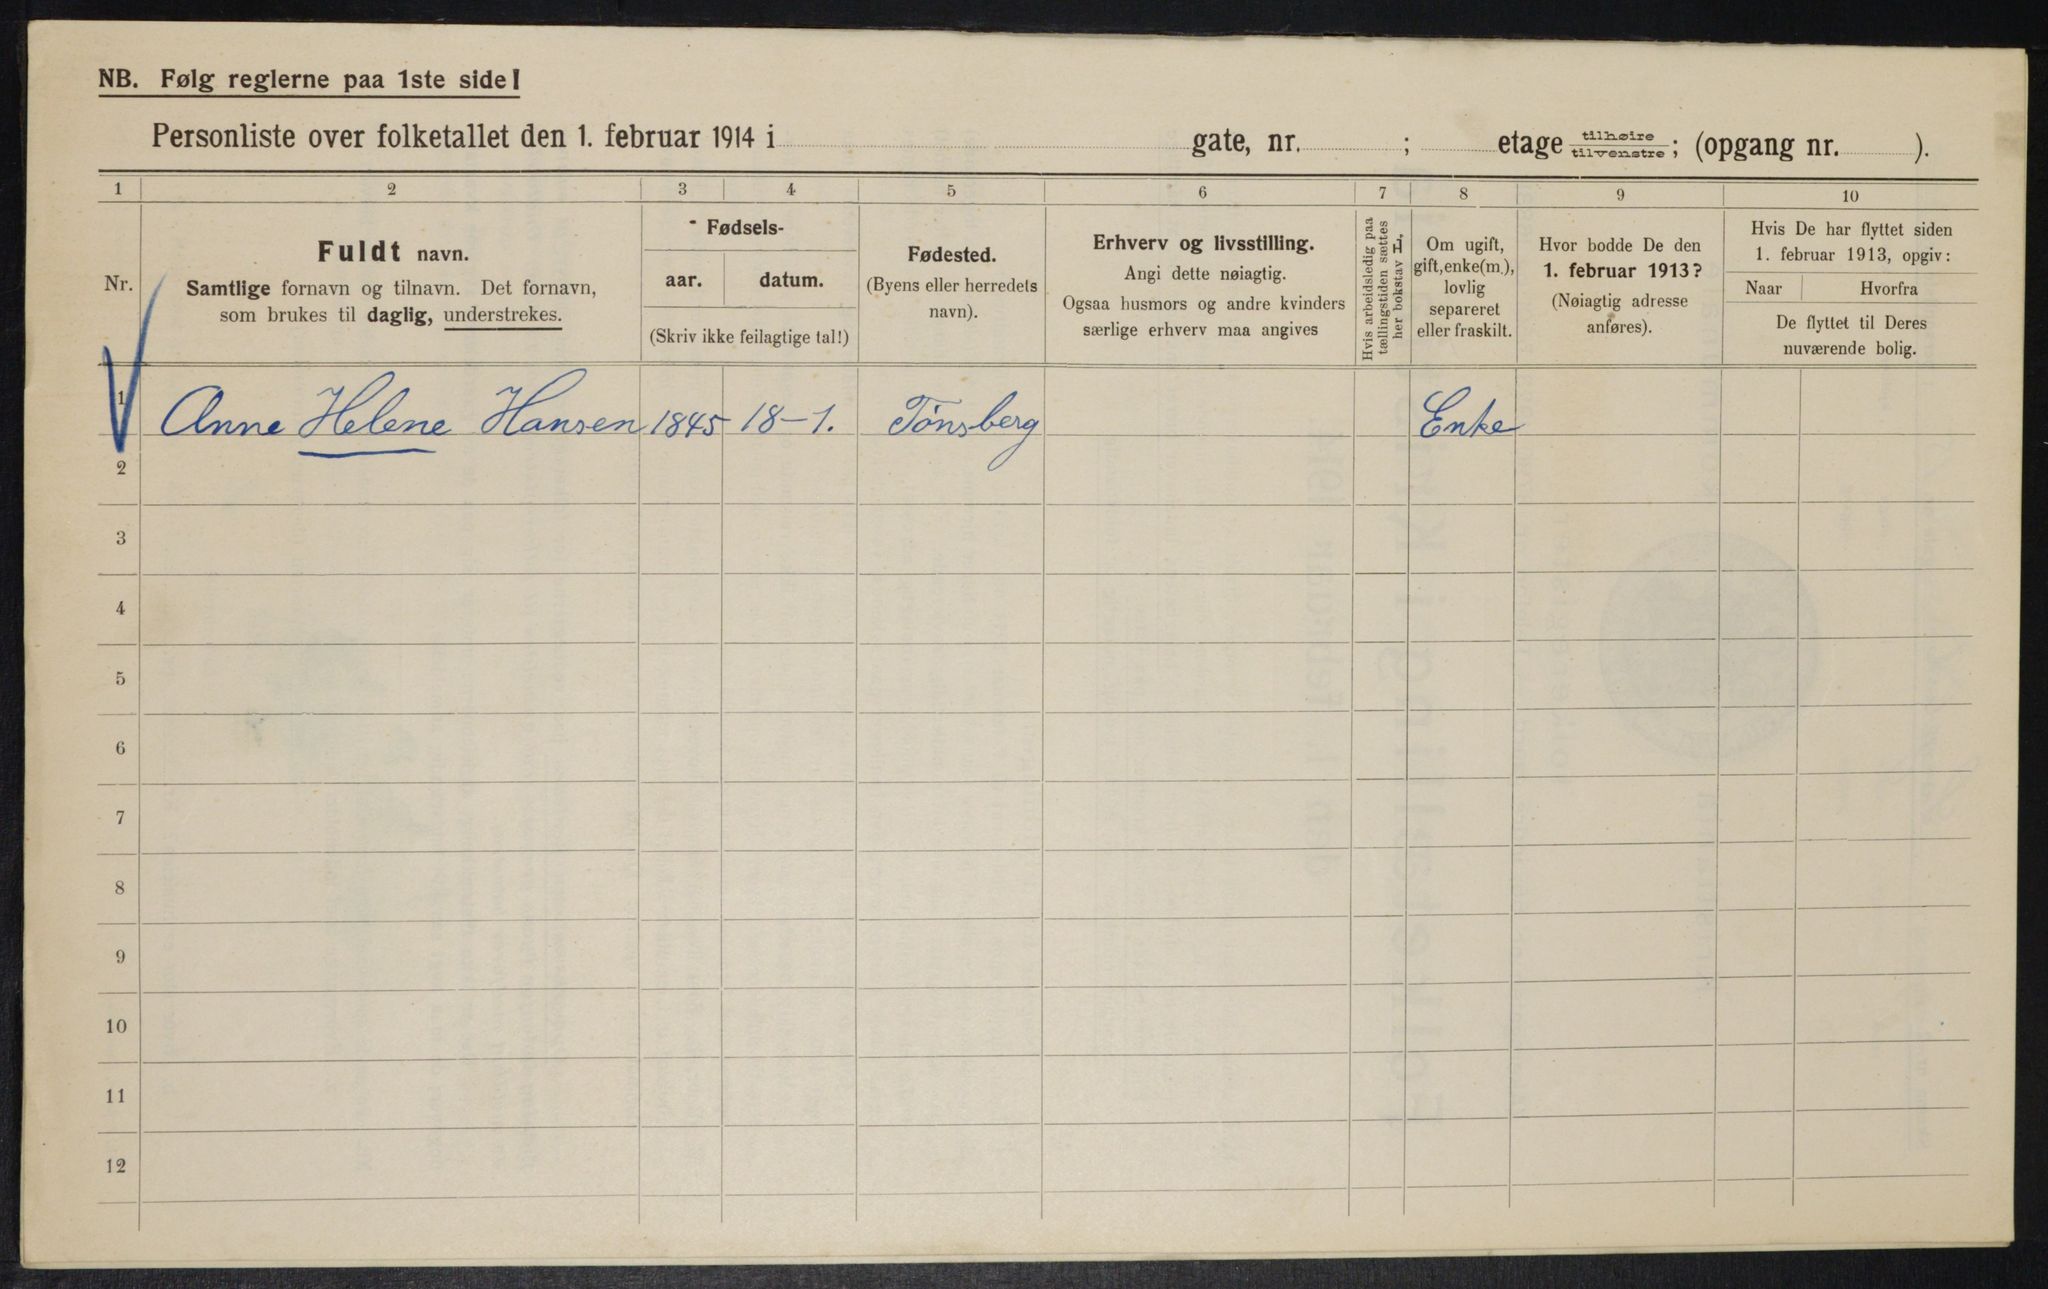 NB. Følg reglerne paa 1ste side!
Personliste over folketallet den 1. februar 1914 i gate, nr. ; etage tilhøire tilvenstre; (opgang nr. ).
1 2 3 4 5 6 7 8 9 10
Nr.
Fuldt navn.
Samtlige fornavn og tilnavn. Det fornavn,
som brukes til daglig, understrekes.
Fødsels-
aar. datum.
(Skriv ikke feilagtige tal!)
Fødested.
(Byens eller herredets
navn).
Erhverv og livsstilling.
Angi dette nøiagtig.
Ogsaa husmors og andre kvinders
særlige erhverv maa angives
Hvis arbeidsledig paa
tællingstiden sættes
her bokstav L.
Om ugift,
gift, enke(m.),
lovlig
separeret
eller fraskilt.
Hvor bodde De den
1. februar 1913?
(Nøiagtig adresse
anføres).
Hvis De har flyttet siden
1. februar 1913, opgiv:
Naar Hvorfra
De flyttet til Deres
nuværende bolig.
1 Anne Helene Hansen 1845 18-1. Tønsberg Enke
2
3
4
5
6
7
8
9
10
11
12